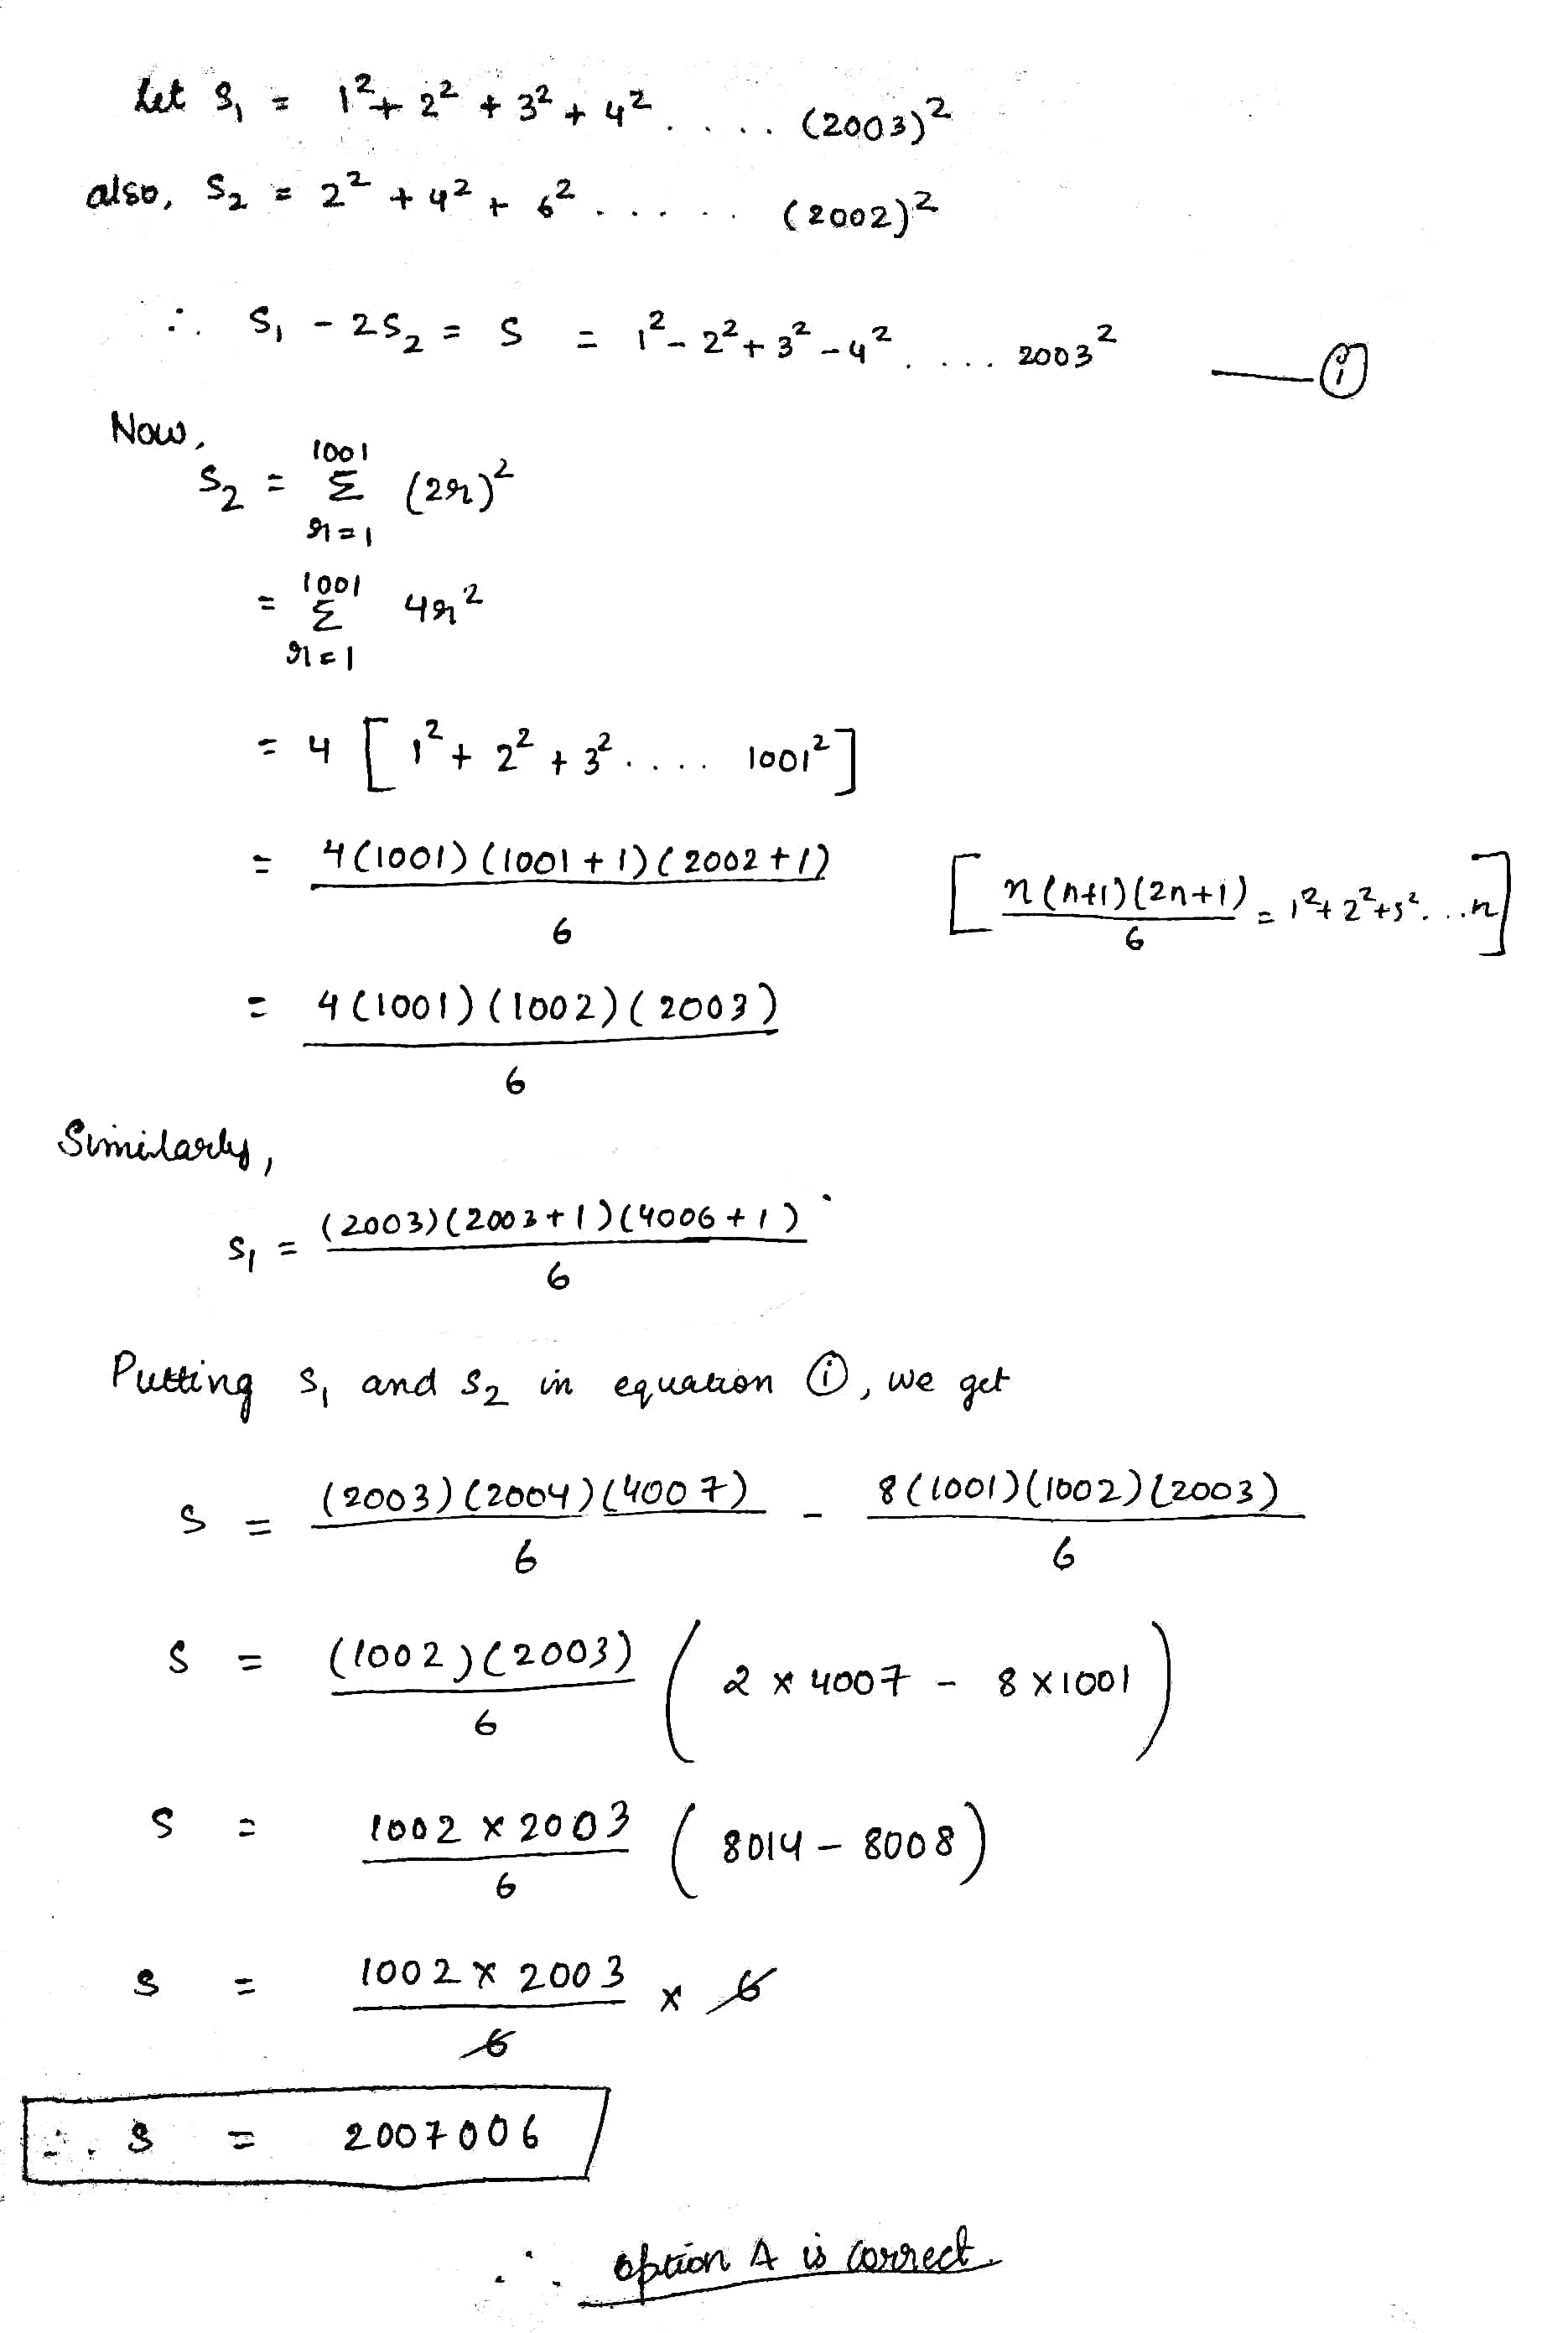 Let S₁ = 1² + 2² + 3² + 4² .... (2003)²
also, S₂ = 2² + 4² + 6² ...... (2002)²
∴ S₁ - 2S₂ = S = 1² - 2² + 3² - 4² .... 2003² —— (i)
Now,
S₂ = 1001 Σ r=1 (2r)²
= 1001 Σ r=1 4r²
= 4 [ 1² + 2² + 3² .... 1001² ]
= 4(1001)(1001+1)(2002+1) / 6 [ n(n+1)(2n+1) / 6 = 1² + 2² + 3² ...n ]
= 4(1001)(1002)(2003) / 6
Similarly,
S₁ = (2003)(2003+1)(4006+1) / 6
Putting S₁ and S₂ in equation (i), we get
S = (2003)(2004)(4007) / 6 - 8(1001)(1002)(2003) / 6
S = (1002)(2003) / 6 ( 2 × 4007 - 8 × 1001 )
S = 1002 × 2003 / 6 ( 8014 - 8008 )
S = 1002 × 2003 / 6 × 6
∴ S = 2007006
∴ option A is correct.